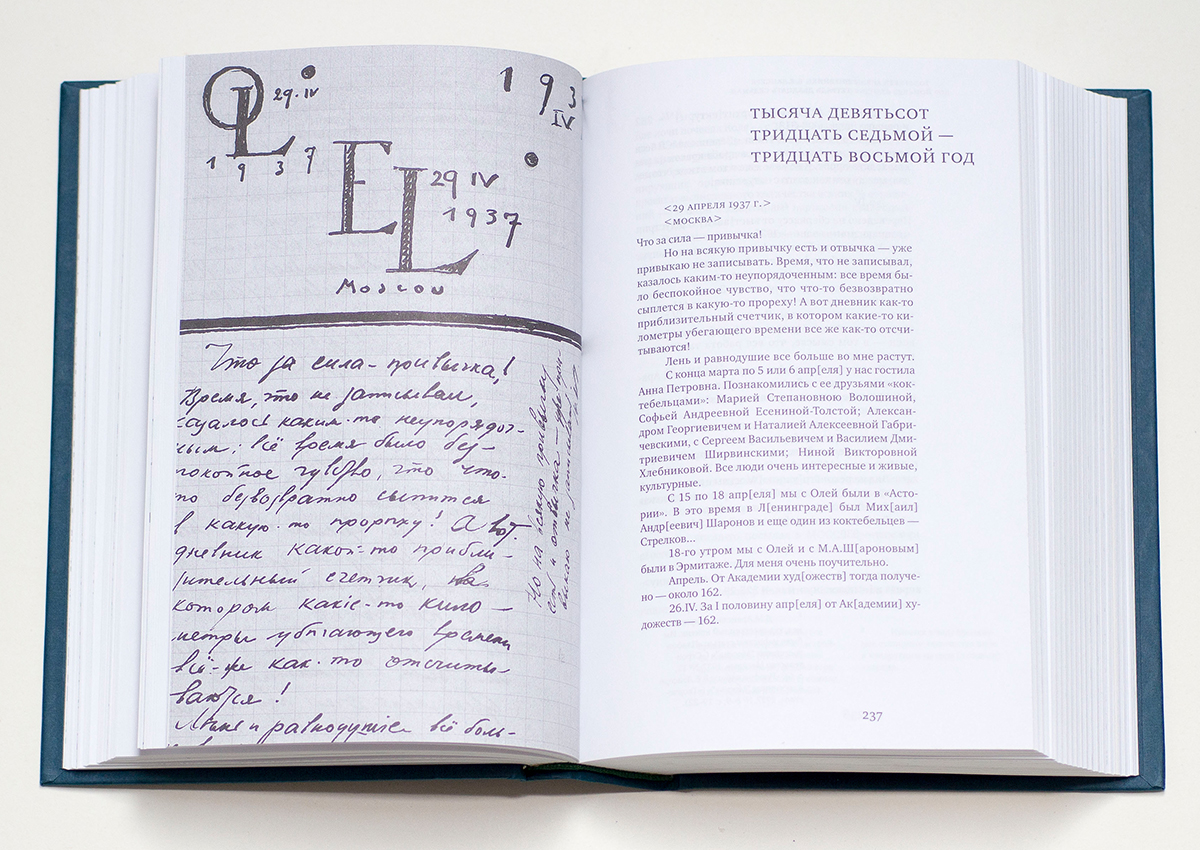 OL 29·IV
1 9 3 7
1 9 3
IV
EL 29 IV
1937
Moscou
Что за сила - привычка!
Время, что не записывал,
казалось каким-то неупорядочен-
ным: всё время было бес-
покойное чувство, что что-
то безвозвратно сыпится
в какую-то прореху! А вот
дневник какой-то прибли-
зительный счетчик, в
котором какие-то кило-
метры убегающего времени
всё-же как-то отсчиты-
ваются!
Лень и равнодушие всё боль-
Но на всякую привычку
есть и отвычка — уже при-
выкаю не записывать
ТЫСЯЧА ДЕВЯТЬСОТ
ТРИДЦАТЬ СЕДЬМОЙ —
ТРИДЦАТЬ ВОСЬМОЙ ГОД
<29 АПРЕЛЯ 1937 Г.>
<МОСКВА>
Что за сила — привычка!
Но на всякую привычку есть и отвычка — уже
привыкаю не записывать. Время, что не записывал,
казалось каким-то неупорядоченным: все время бы-
ло беспокойное чувство, что что-то безвозвратно
сыплется в какую-то прореху! А вот дневник как-то
приблизительный счетчик, в котором какие-то ки-
лометры убегающего времени все же как-то отсчи-
тываются!
Лень и равнодушие все больше во мне растут.
С конца марта по 5 или 6 апр[еля] у нас гостила
Анна Петровна. Познакомились с ее друзьями «кок-
тебельцами»: Марией Степановною Волошиной,
Софьей Андреевной Есениной-Толстой; Алексан-
дром Георгиевичем и Наталией Алексеевной Габри-
чевскими, с Сергеем Васильевичем и Василием Дми-
триевичем Ширвинскими; Ниной Викторовной
Хлебниковой. Все люди очень интересные и живые,
культурные.
С 15 по 18 апр[еля] мы с Олей были в «Асто-
рии». В это время в Л[енинграде] был Мих[аил]
Андр[еевич] Шаронов и еще один из коктебельцев —
Стрелков...
18-го утром мы с Олей и с М.А.Ш[ароновым]
были в Эрмитаже. Для меня очень поучительно.
Апрель. От Академии худ[ожеств] тогда получе-
но — около 162.
26.IV. За I половину апр[еля] от Ак[адемии] ху-
дожеств — 162.
237